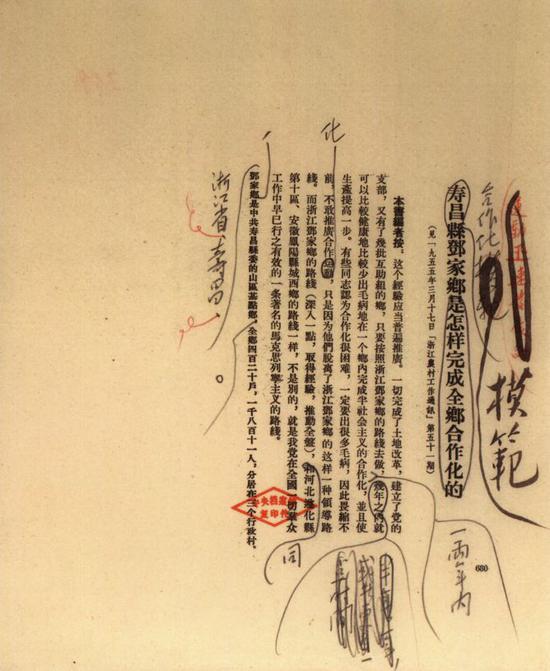 模範
合作化
寿昌縣鄧家鄉是怎样完成全鄉合作化的
(見「一九五五年三月十七日「浙江農村工作通訊」第五十一期)
本書編者按：这个經驗应当普遍推廣。一切完成了土地改革，建立了党的
支部，又有了幾批互助組的鄉，只要按照浙江鄧家鄉的路綫去做，幾年之內就
可以比較健康地比較少出毛病地在一个鄉內完成半社会主义的合作化，並且使
生產提高一步。有些同志認为合作化很困难，一定要出很多毛病，因此畏縮不
前，不敢推廣合作，只是因为他們脫离了浙江鄧家鄉的这样一种領導路
綫。而浙江鄧家鄉的路綫（深入一點，取得經驗，推动全盤），和河北遵化縣
第十區、安徽鳳陽縣城西鄉的路綫一样，不是別的，就是我党在全國一切羣众
工作中早已行之有效的一条著名的馬克思列寧主义的路綫。
鄧家鄉是中共寿昌縣委的山區基點鄉。全鄉四百二十戶，一千八百十一人，分居在三个行政村。
浙江省寿昌
化
同
一兩年內
680
中央檔案館
复印件